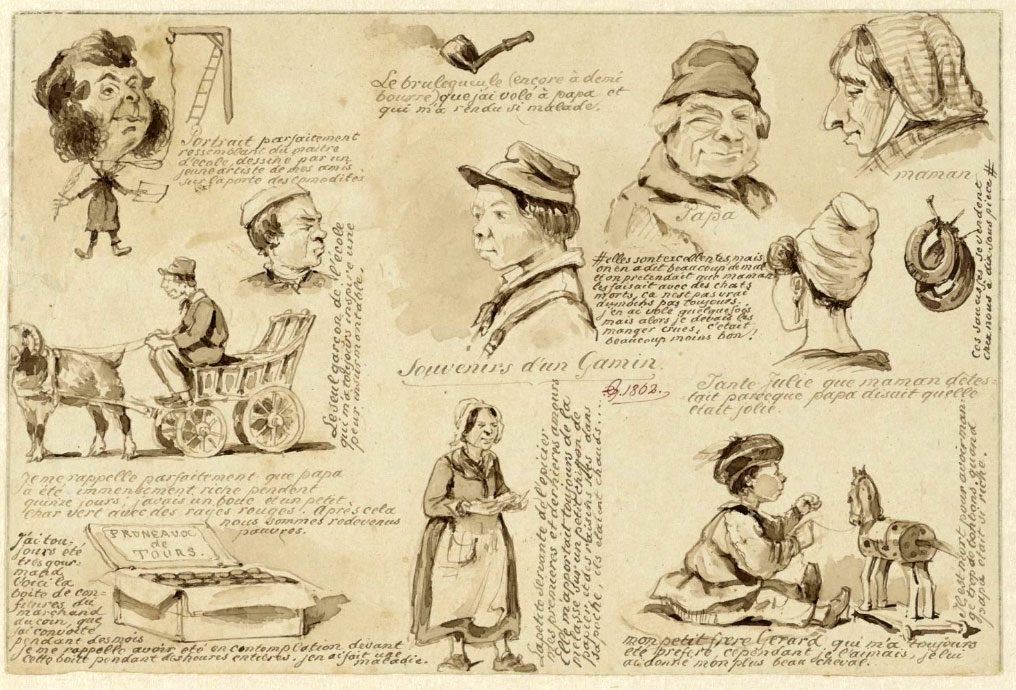 Portrait parfaitement
ressemblant du maitre
d'école, dessiné par un
jeune artiste de mes amis
sur la porte des comodités
Le brulegueule (encore à demi
bourré) que j'ai volé à papa et
qui m'a rendu si malade.
Papa
maman
Ces saucisses se vendent
chez nous à dix sous pièce #
# elles sont excellentes, mais
on en a dit beaucoup de mal
et on pretendait que maman
les faisait avec des chats
morts, ça n'est pas vrai
du moins pas toujours.
j'en ai volé quelquefois
mais alors je devais les
manger crues, c'était
beaucoup moins bon!
Le seul garçon de l'école
qui m'a toujours inspiré une
peur insurmontable.
Souvenirs d'un Gamin.
1862.
Tante Julie que maman détes-
tait parceque papa disait qu'elle
était jolie.
Je me rappelle parfaitement que papa
a été immensément riche pendent
quinze jours, j'avais un bouc et un petit
char vert avec des rayes rouges! Après cela
nous sommes redevenus
pauvres.
PRUNEAUX
DE
TOURS.
J'ai tou-
jours été
très gour-
mand
Voici la
boite de con-
fitures du
marchand
du coin, que
j'ai convoité
pendant des mois
je me rappelle avoir été en contemplation devant
cette boite pendant des heures entières. j'en ai fait une
maladie.
La petite servante de l'épicier
mes premières et dernières amours
Elle m'apportait toujours de la
mélasse sur un petit chiffon de
papier et des raisins secs dans
sa poche, ils étaient chauds....
mon petit frère Gérard, qui m'a toujours
été préféré, cependant je l'aimais, je lui
ai donné mon plus beau cheval.
Il est mort pour avoir man-
gé trop de bonbons, quand
papa était si riche.